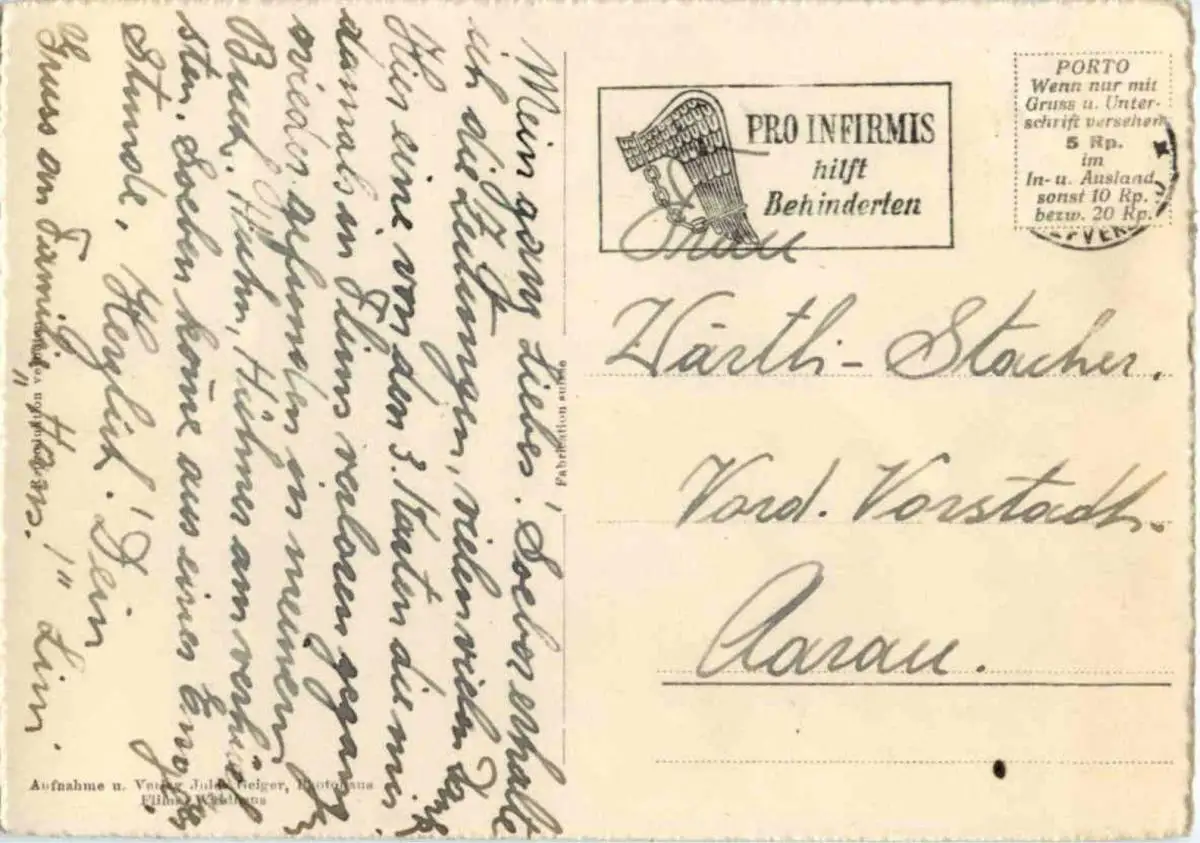 Mein ganz Liebes! Soeben erhalte
ich die Zeitungen, vielen vielen Dank
Hier eine von den 3. Karten die mir
damals in Flims verloren gegang
wieder gefunden in meinem
Buch. Huhn, Hühner am
sten. Soeben kome aus einer
Stunde. Herzlich! Dein
Gruss an Familie Hans. "
Lini
PRO INFIRMIS
hilft
Behinderten
PORTO
Wenn nur mit
Gruss u. Unter-
schrift versehen
5 Rp.
im
In- u. Ausland
sonst 10 Rp.
bezw. 20 Rp.
Frau
Wärtli-Stocher.
Vord. Vorstadt.
Aarau.
Fabrication suisse
Aufnahme u. Verlag Jules Geiger, Photohaus
Flims Waldhaus